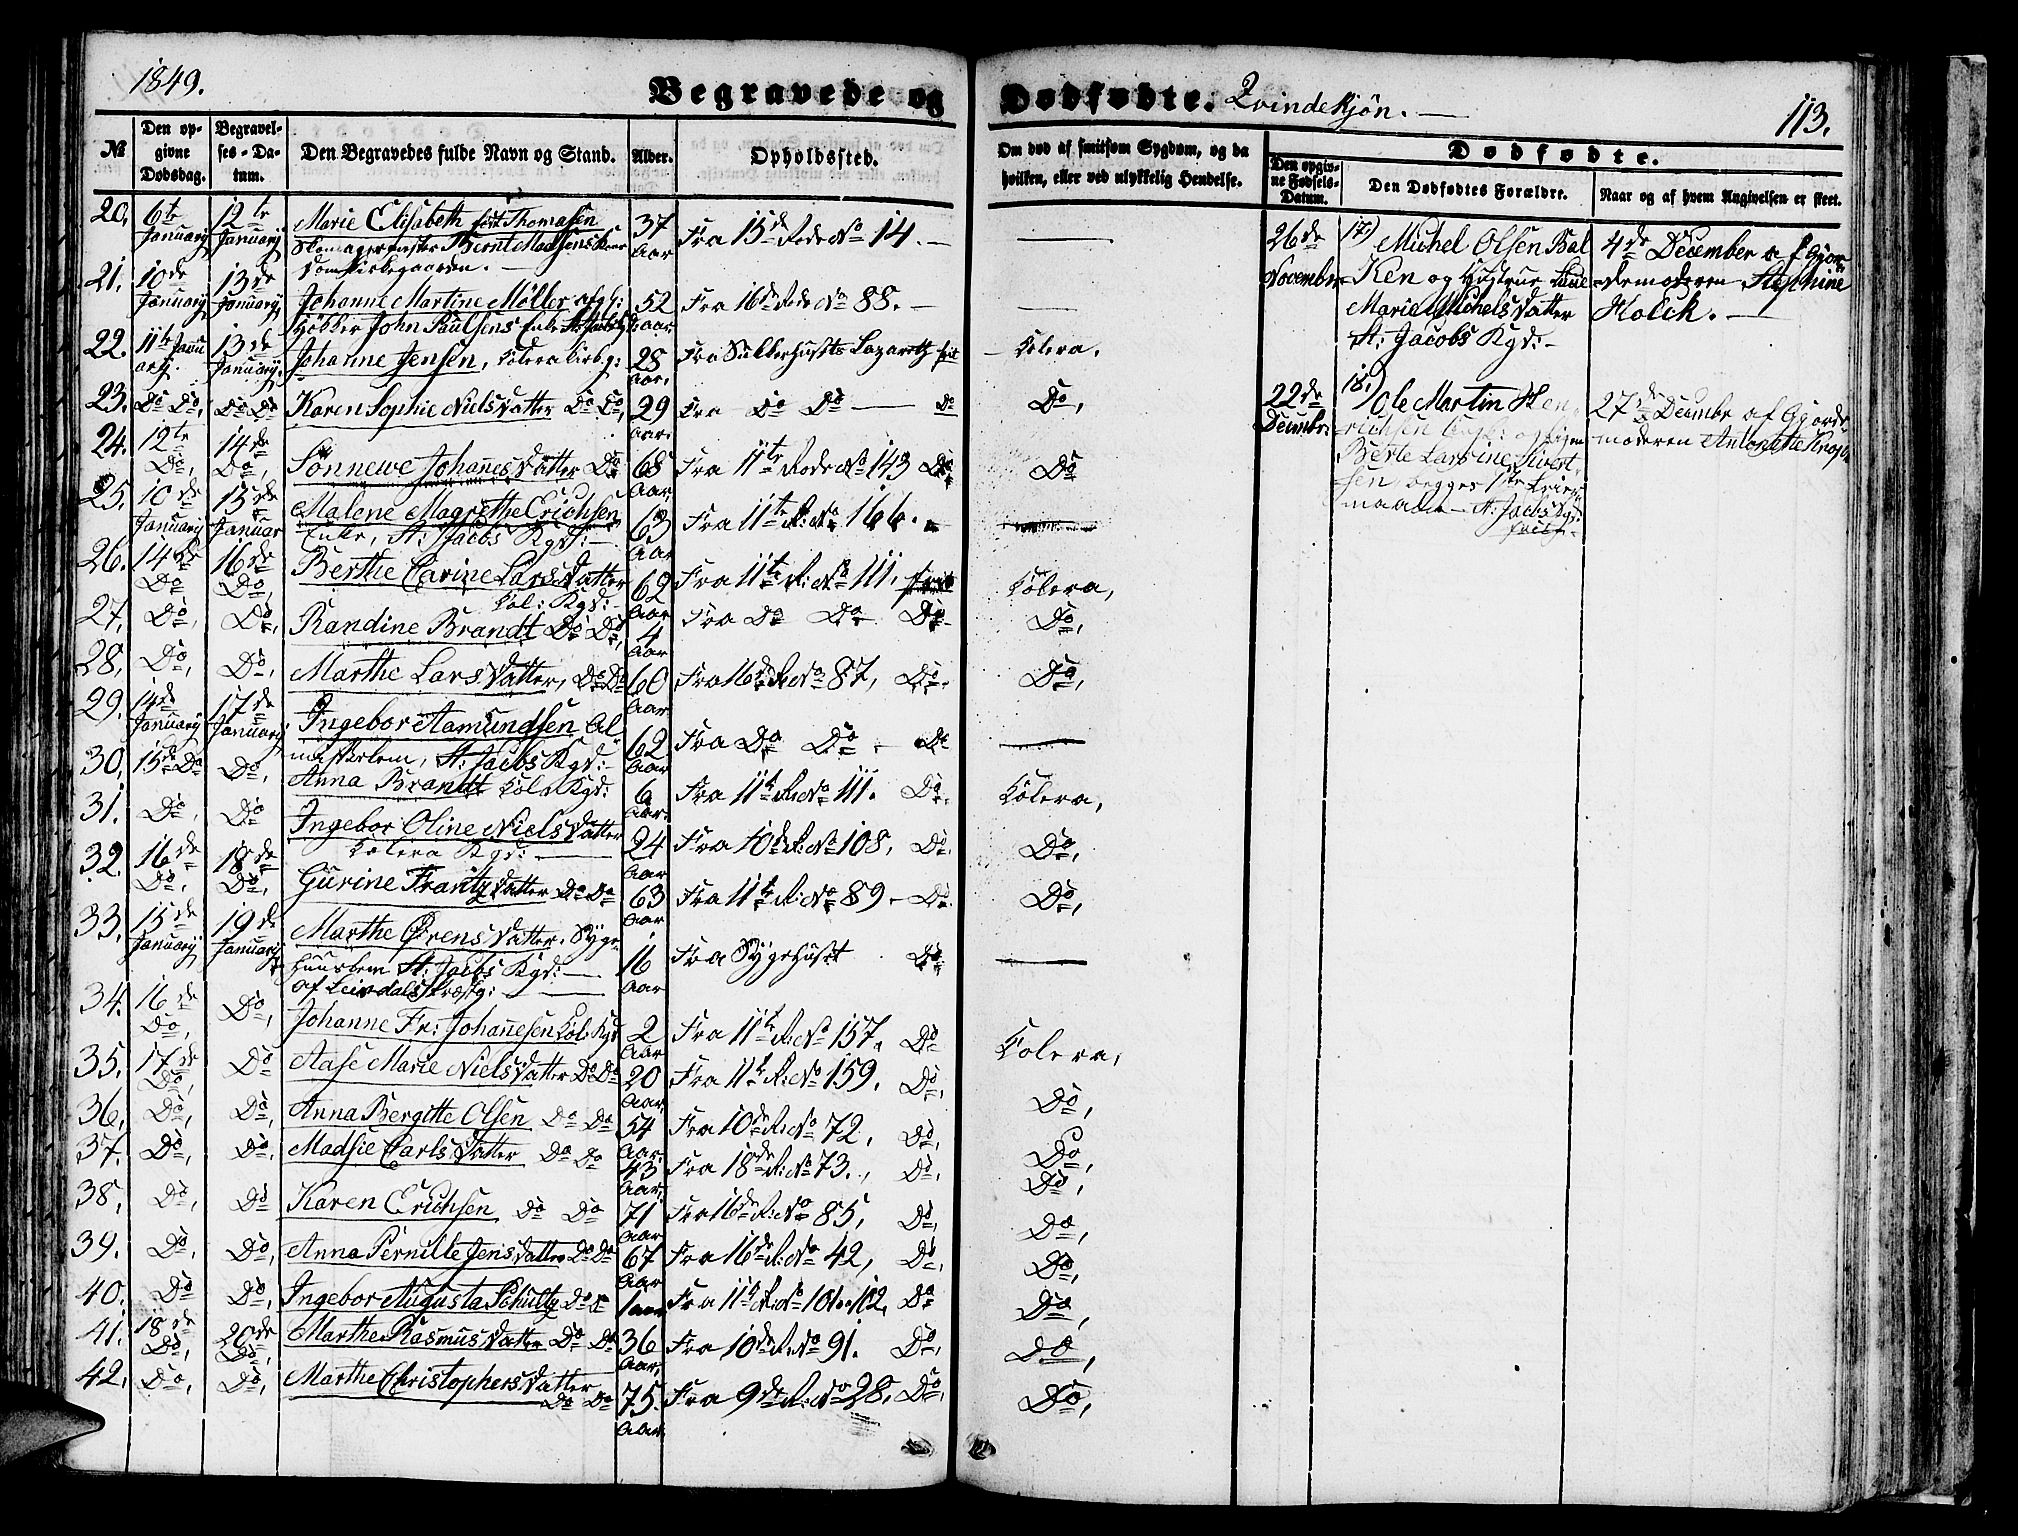 1849.
Begravede og Dødfødte. Qvindekjön. —
113.
№ | Den opgivne Dødsdag. | Begravelses-Datum. | Den Begravedes fulde Navn og Stand. | Alder. | Opholdssted. | Om død af smitsom Sygdom, og da hvilken, eller ved ulykkelig Hendelse.
Dødfødte.
Den opgivne Fødsels-Datum. | Den Dødfødtes Forældre. | Naar og af hvem Angivelsen er skeet.
20. 6te January 12te January Marie Elisabeth født Thomasen 37 Aar Fra 15de Rode No 14. —
Skomagermester Bernt Madsens
Domkirkegaarden. —
21. 10de January 13de January Johanne Martine Möller afg: 52 Aar Fra 16de Rode No 88. —
Bödker John Paulsens Enke St: Jacobs
22. 11te January 13de January. Johanne Jensen, Kolera Kirkg: 28 Aar. Fra Lazareth frit — Kolera.
23. Do Do, Do Do Karen Sophie Nielsdatter Do Do, 29 Aar. Fra Do Do — Do Do,
24. 12te Do, 14de Do, Sönnewe Johannesdatter Do 68 Aar Fra 11te Rode No 143 Do Do
25. 10de January 15de Januar Malene Magrethe Erichsen 63 Aar Fra 11te R: No 166. —
Enke, St: Jacobs Kgd: —
26. 14de Do 16de Do, Berthe Carine Larsdatter 62 Aar Fra 11te R: No 111, frit Kolera,
Kol: Kgd: —
27. Do, Do, Randine Brandt Do Do, 4 Aar Fra Do Do Do Do,
28, Do, Do, Marthe Larsdatter, Do Do 60 Aar Fra 16de R: No 87, Do. Do,
29. 14de January 17de January Ingebor Aamundsen Al 62 Aar Fra Do Do — Do
St: Jacobs Kgd: —
30. 15de Do Do, Anna Brandt Kol. Kgd: 6 Aar. Fra 11te R: No 111. Do. Kolera,
31. Do, Do Ingebor Oline Nielsdatter 24 Aar Fra 10de R: No 108, Do. Do,
Kolera Kgd: —
32. 16de Do, 18de Do, Gurine Frantzdatter Do Do 63 Aar Fra 11te R: No 89 — Do. Do,
33. 15de January 19de January Marthe Örensdatter. Syge- 16 Aar Fra Sygehuset Do
huuslem St: Jacobs Kgd: —
af Leirdals Præstg: —
34. 16de Do, Do, Johanne Fr: Johannesen Kol: Kgd 2 Aar Fra 11te R: No 157. Do Kolera,
35. 17de Do, Do Aase Marie Nielsdatter Do Do 20 Aar. Fra 11te R: No 159. Do, Do,
36, Do, Do, Anna Bergitte Olsen Do Do 54 Aar. Fra 10de R: No 72, Do, Do,
37. Do, Do, Madsie Carlsdatter Do Do 43 Aar, Fra 18de R: No 73., Do, Do,
38, Do, Do Karen Erichsen Do Do 71 Aar Fra 16de R: No 85, Do, Do,
39. Do, Do, Anna Pernille Jensdatter Do Do 67 Aar Fra 16de R: No 42, Do, Do,
40. Do Do, Ingebor Augusta Schultz Do Do 1 aar Fra 11te R: No Do Do,
41. 18de Do, 20de Do, Marthe Rasmusdatter Do Do 36 Aar, Fra 10de R: No 91. Do, Do,
42, Do, Do, Marthe Christophersdatter Do Do 75. Aar Fra 9de R: No 28, Do, Do,
26de November 17) Michel Olsen Bal 4de December af Gjor-
ken og Hustrue
demoderen Stephine
Marie Michelsdatter Holck. —
St: Jacobs Kgd: —
22de Decembr: 18.) Ole Martin Hen- 27de Decembr af Gjorde-
richsen
moderen Antonette
Berte Larsine Sivert-
sen, begges 1ste
St. Jacobs Kgd: